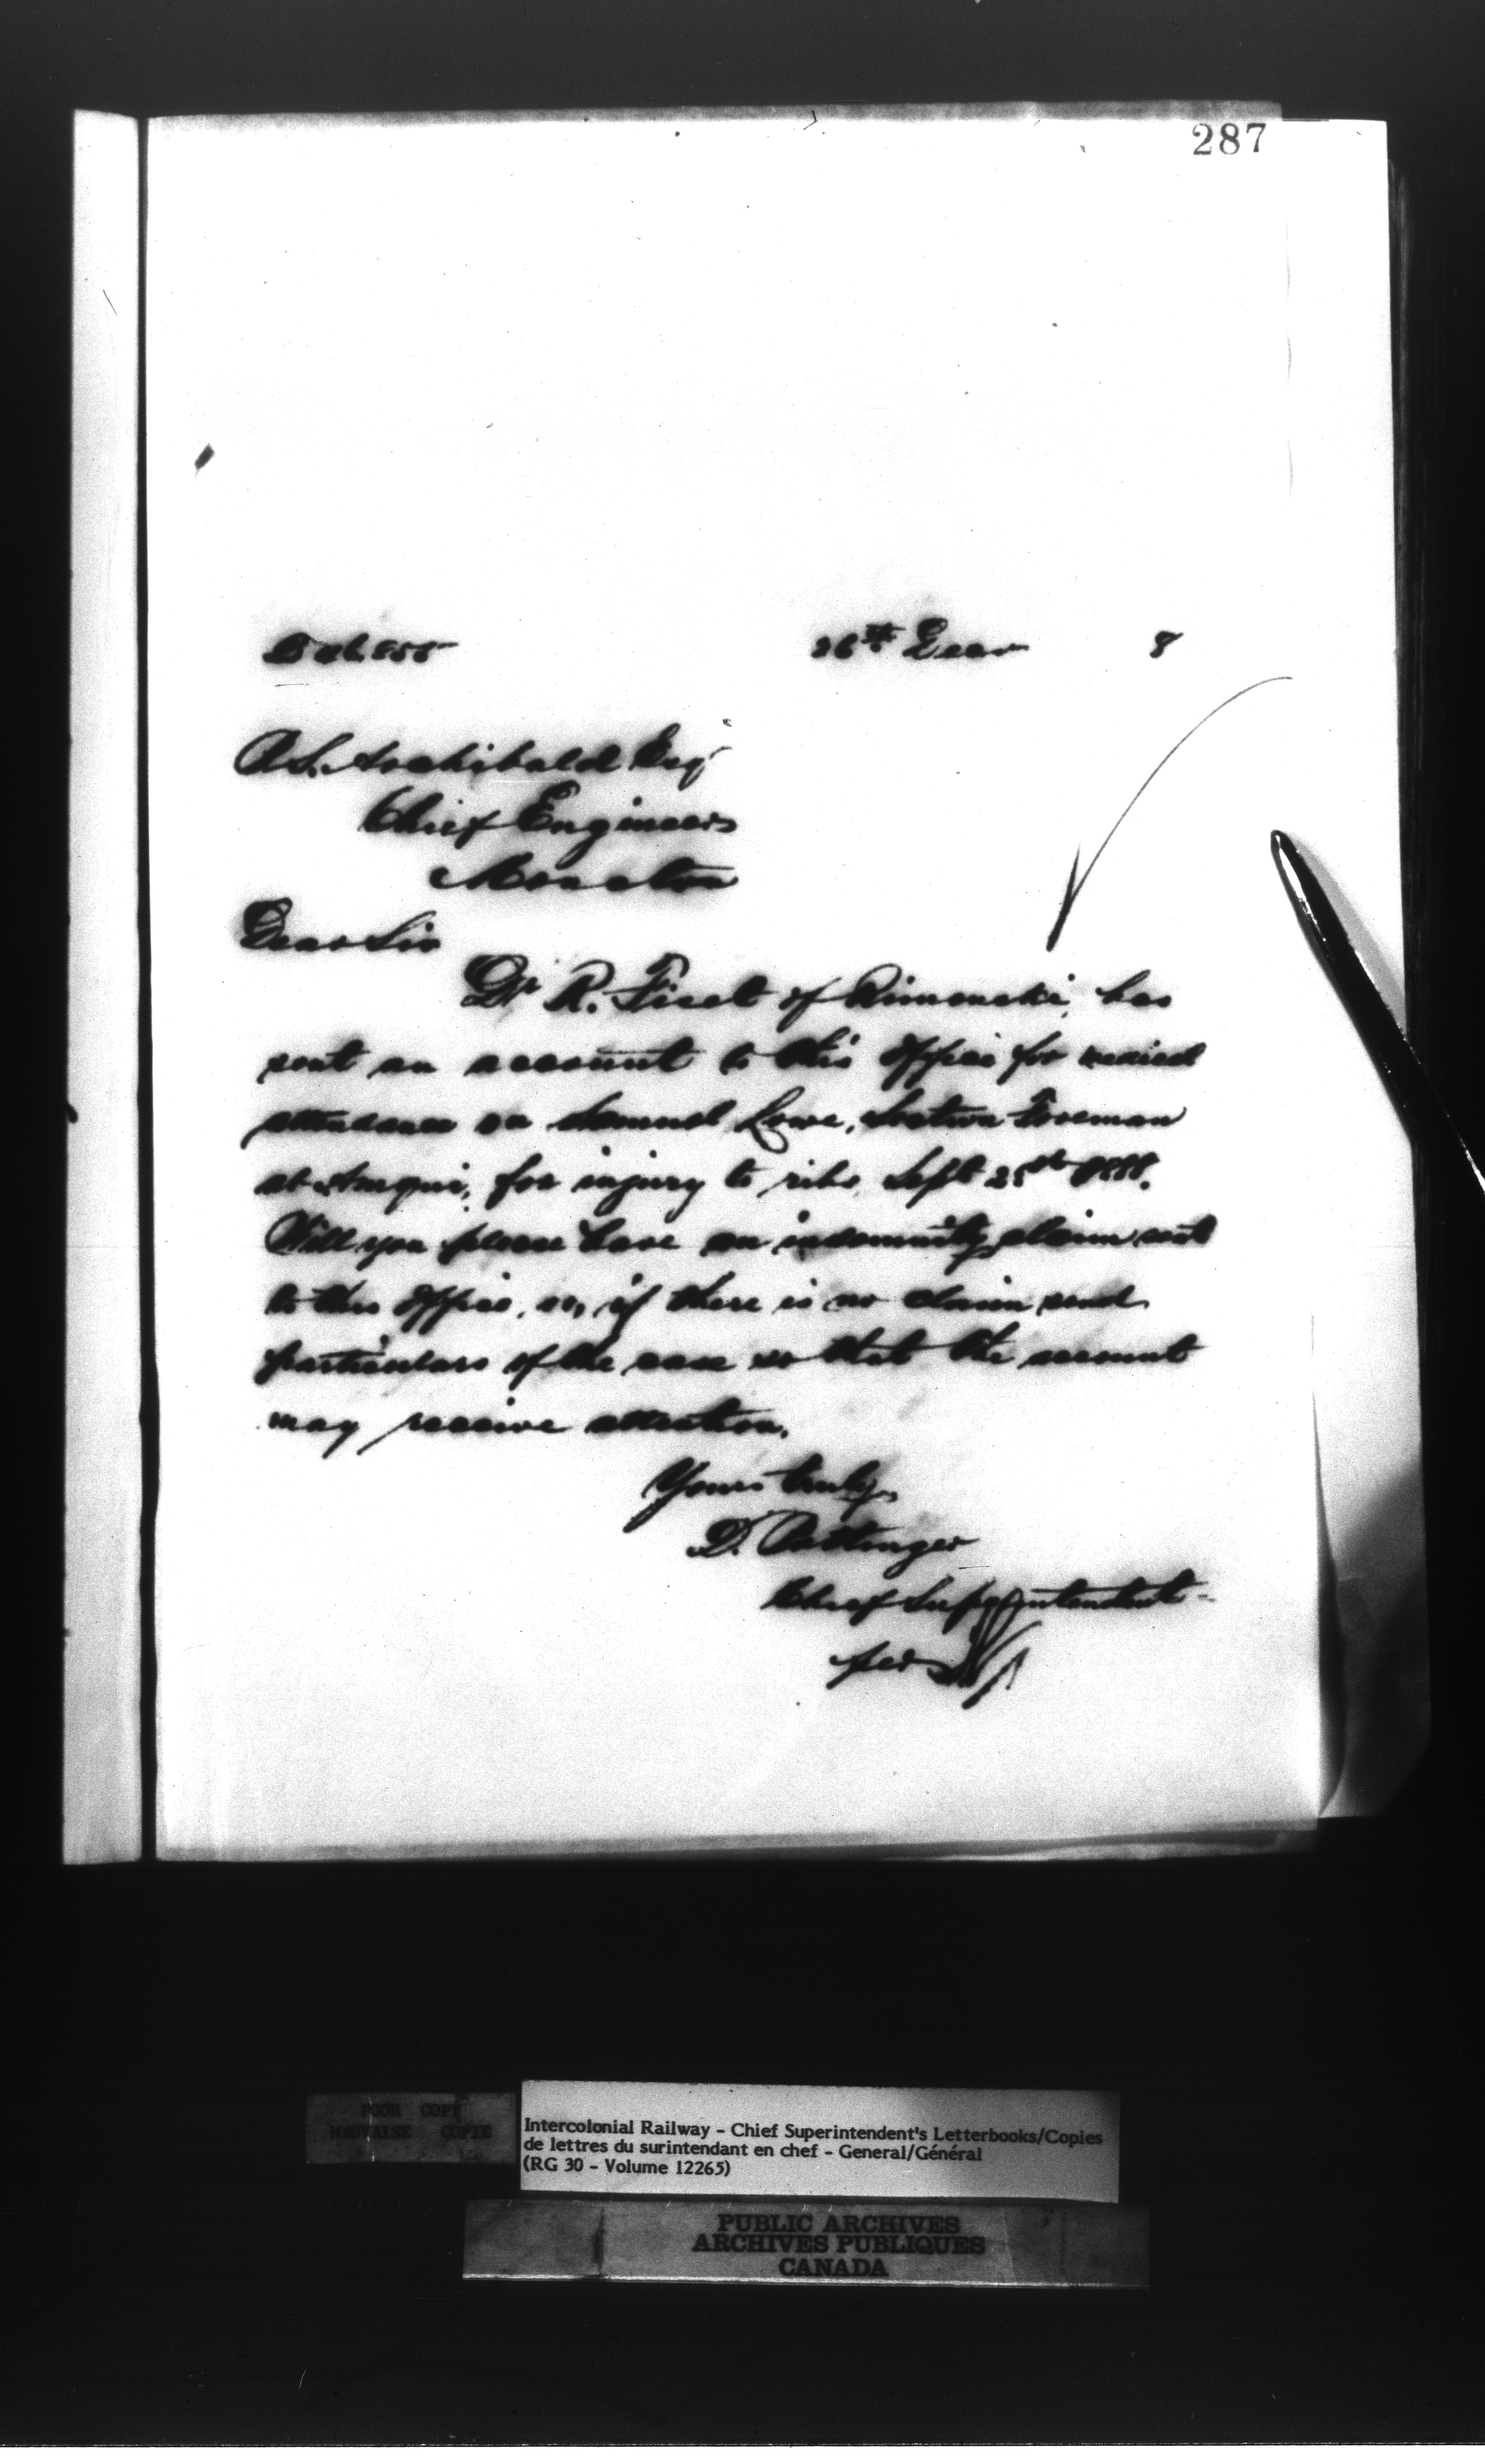 287
26th Decr 8
P.S. Archibald Esq
Chief Engineer
Moncton
Dear Sir
Dr R. Fiset of Rimouski, has
sent an account to this office for medical
attendance on Samuel Lowe, Section Foreman
at Amqui, for injury to ribs, Sept 25th 1888.
Will you please have an indemnity claim sent
to this office, or, if there is no claim send
particulars of the case so that the account
may receive attention.
Yours truly,
D. Pottinger
Chief Superintendent
per
POOR COPY
MAUVAISE COPIE
Intercolonial Railway - Chief Superintendent's Letterbooks/Copies
de lettres du surintendant en chef - General/Général
(RG 30 - Volume 12265)
PUBLIC ARCHIVES
ARCHIVES PUBLIQUES
CANADA